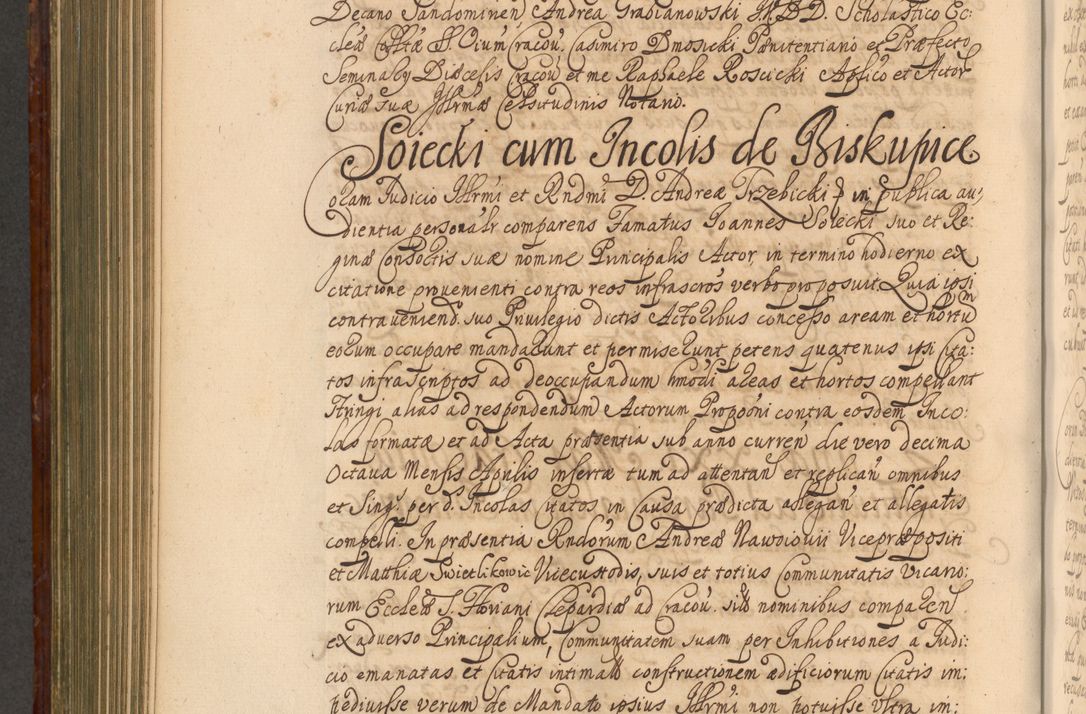 Decano Sandominen Andrea Grabianowski J.V.D.D. Scholastico Ec:
cleae Colltae S. Oium Cracou. Casimiro Dmosicki Paenitentiario et Praefecto
Seminarÿ Diaecesis Cracou et me Raphaele Roscicki Aplico et Actor
Curiae suae Illrmae Celsitudinis Notario.
Soiecki cum Incolis de Biskupice
Coram Judicio Illrmi et Rndmi D. Andreae Trzebicki in publica au:
dientia personalr comparens Famatus Joannes Soiecki suo et Re:
ginae Consortis suae nomine Principalis Actor, in termino hodierno ex
citatione proueniente contra reos infrascros verbo proposuit. Quia ipsi
contraueniend. suo Priuilegio dictis Actoribus concesso aream et hortum
eorum occupare mandarunt et permiserunt petens quatenus ipsi Cita:
tos infrascriptos ad deoccupandum hmodi areas et hortos compellant
stringi alias ad respondendum Actorum Propooni contra eosdem Inco:
las formatae et ad Acta praesentia sub anno curren die vero decima
Octaua Mensis Aprilis insertae tum ad attentan et replican omnibus
et Sing. per d. Incolas Citatos in Causa praedicta allegan et allegatis
compelli. In praesentia Rndorum Andreae Nawoiouii Vicepraepositi
et Matthiae Swietlikowic Vicecustodis, suis et totius Communitatis Vicario:
rum Eccleae S. Floriani Clepardiae ad Cracou. sitae nominibus comparen
ex aduerso Principalium, Communitatem suam per Inhibitiones a Judi:
cio emanatas et Citatis intimatas constructionem aedificiorum Citatis im:
pediuisse verum de Mandato ipsius Illrmi non potuisse vltra im: